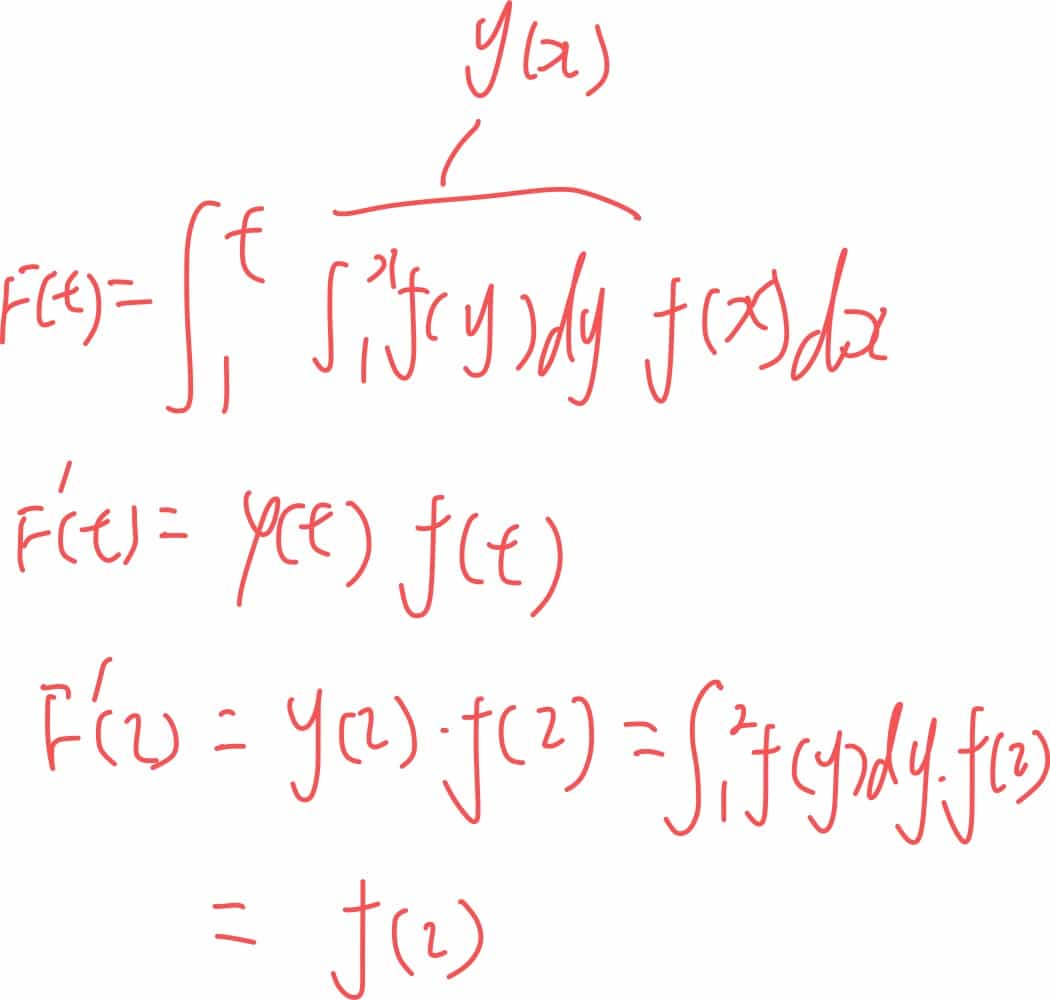 y(x)
F(t)=∫₁ᵗ ∫₁ˣ f(y)dy f(x)dx
F'(t)= φ(t) f(t)
F'(2) = y(2)·f(2) = ∫₁² f(y)dy·f(2)
= f(2)